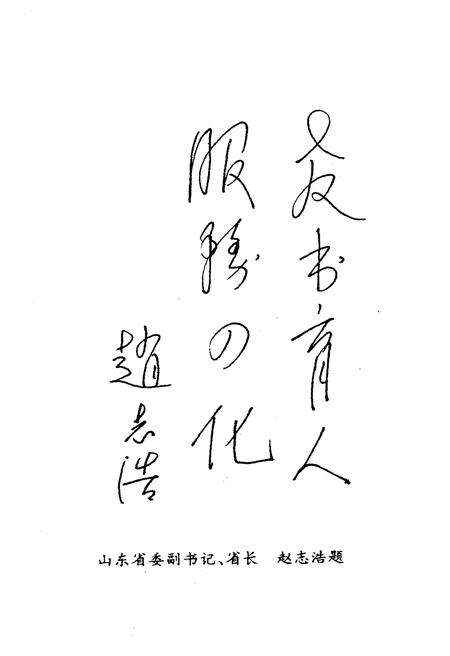 教书育人
服务四化
趙志浩
山东省委副书记、省长　赵志浩题